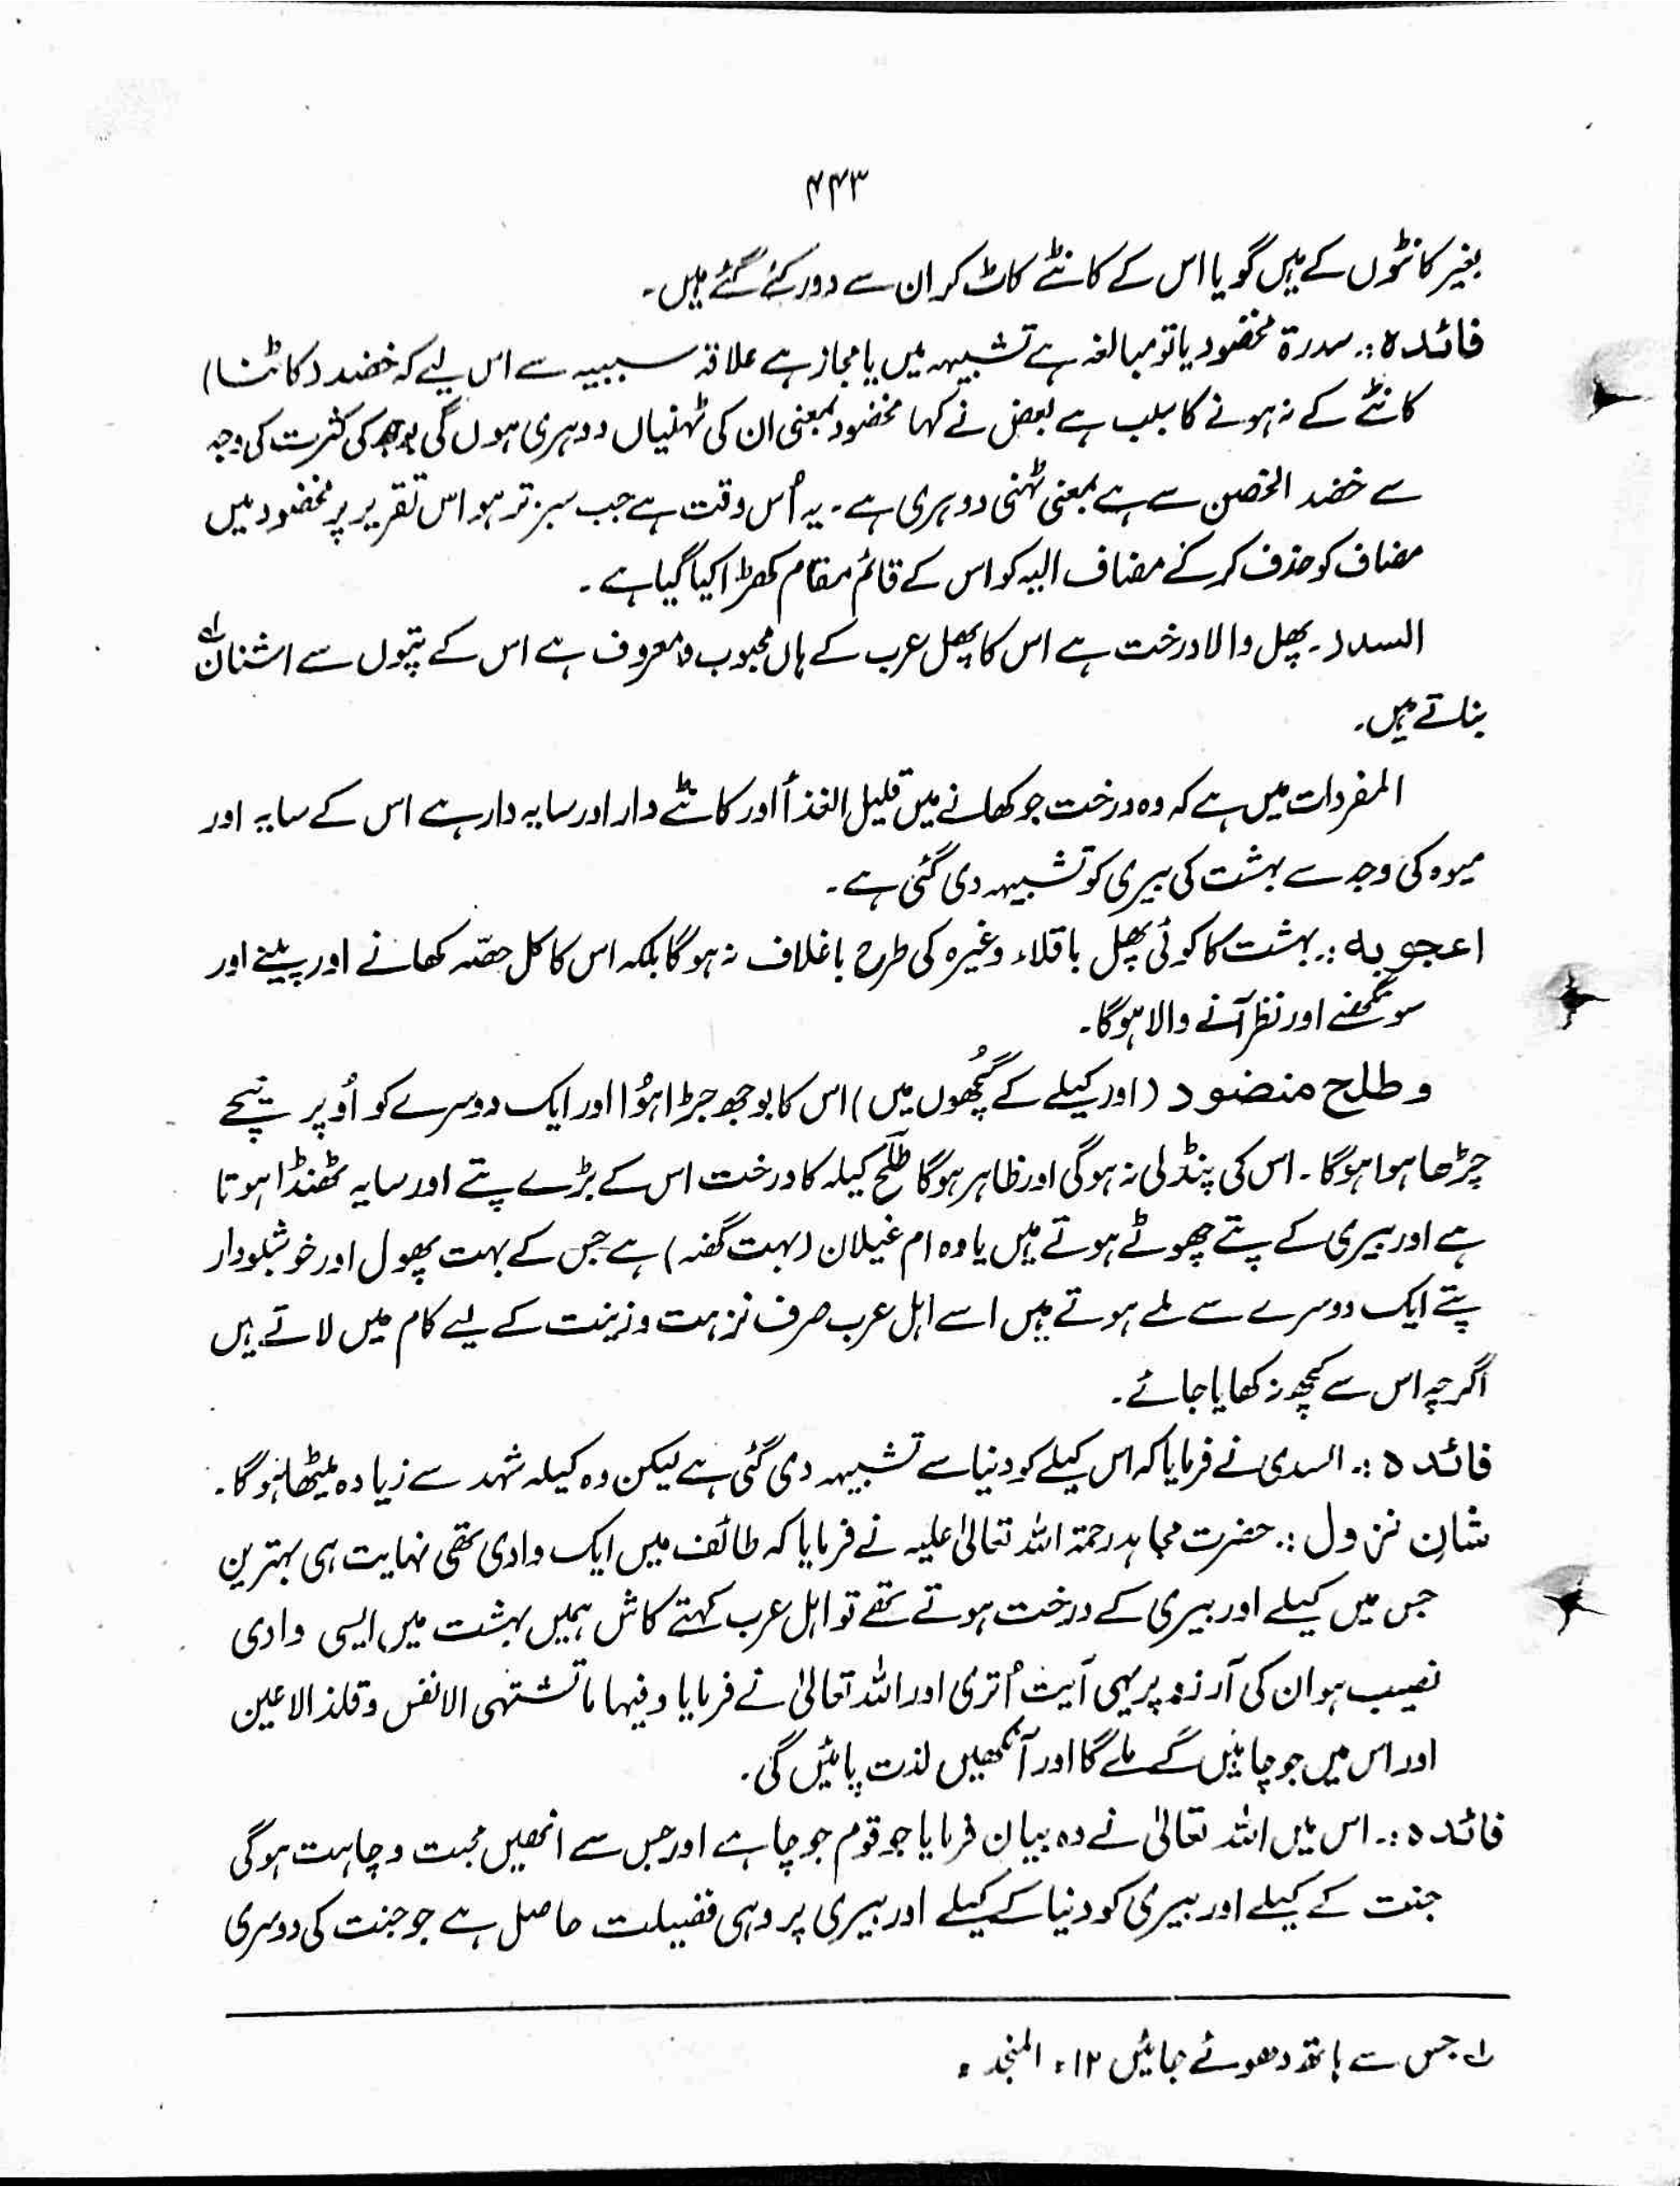 ۴۴۳
بغیر کانٹوں کے ہیں گویا اس کے کانٹے کاٹ کر ان سے دور کئے گئے ہیں۔
فائدہ :۔ سدرۃ مخضود یا تو مبالغہ ہے تشبیہہ میں یا مجاز ہے علاقہ سببیہ سے اس لیے کہ خضد (کاٹنا)
کانٹے کے نہ ہونے کا سبب ہے بعض نے کہا مخضود بمعنی ان کی ٹہنیاں دوہری ہوں گی بوجھ کی کثرت کی وجہ
سے خضد الخصن سے ہے بمعنی ٹہنی دوہری ہے۔ یہ اُس وقت ہے جب سبز تر ہو اس تقریر پر مخضود میں
مضاف کو حذف کر کے مضاف الیہ کو اس کے قائم مقام کھڑا کیا گیا ہے ۔
السدر ۔ پھل والا درخت ہے اس کا پھل عرب کے ہاں محبوب و معروف ہے اس کے پتوں سے اشنان لہ
بناتے ہیں۔
المفردات میں ہے کہ وہ درخت جو کھانے میں قلیل الغذأ اور کانٹے دار اور سایہ دار ہے اس کے سایہ اور
میوہ کی وجہ سے بہشت کی بیری کو تشبیہہ دی گئی ہے ۔
اعجوبہ :۔ بہشت کا کوئی پھل باقلاء وغیرہ کی طرح باغلاف نہ ہو گا بلکہ اس کا کل حصّہ کھانے اور پینے اور
سونگھنے اور نظر آنے والا ہو گا۔
و طلح منضود (اور کیلے کے گُچھوں میں) اس کا بوجھ جڑا ہوُا اور ایک دوسرے کو اُوپر نیچے
چڑھا ہوا ہو گا ۔ اس کی پنڈلی نہ ہوگی اور ظاہر ہو گا طلح کیلہ کا درخت اس کے بڑے پتے اور سایہ ٹھنڈا ہوتا
ہے اور بیری کے پتے چھوٹے ہوتے ہیں یا وہ ام غیلان (بہت گھنہ) ہے جس کے بہت پھول اور خوشبودار
پتے ایک دوسرے سے ملے ہوتے ہیں اسے اہل عرب صرف نزہت و زینت کے لیے کام میں لاتے ہیں
اگرچہ اس سے کچھ نہ کھایا جائے ۔
فائدہ :۔ السدی نے فرمایا کہ اس کیلے کو دنیا سے تشبیہہ دی گئی ہے لیکن وہ کیلہ شہد سے زیادہ میٹھا ہو گا ۔
شانِ نزول :۔ حضرت مجاہد رحمۃ اللہ تعالیٰ علیہ نے فرمایا کہ طائف میں ایک وادی تھی نہایت ہی بہترین
جس میں کیلے اور بیری کے درخت ہوتے تھے تو اہل عرب کہتے کاش ہمیں بہشت میں ایسی وادی
نصیب ہو ان کی آرزو پر یہی آیت اُتری اور اللہ تعالیٰ نے فرمایا وفیہا ما تشتھی الانفس و تلذ الاعین
اور اس میں جو چاہیں گے ملے گا اور آنکھیں لذت پائیں گی ۔
فائدہ :۔ اس میں اللہ تعالیٰ نے وہ بیان فرمایا جو قوم جو چاہے اور جس سے انھیں محبت و چاہت ہوگی
جنت کے کیلے اور بیری کو دنیا کے کیلے اور بیری پر وہی فضیلت حاصل ہے جو جنت کی دوسری
لہ جس سے ہاتھ دھوئے جائیں ۱۲ء المنجد ء